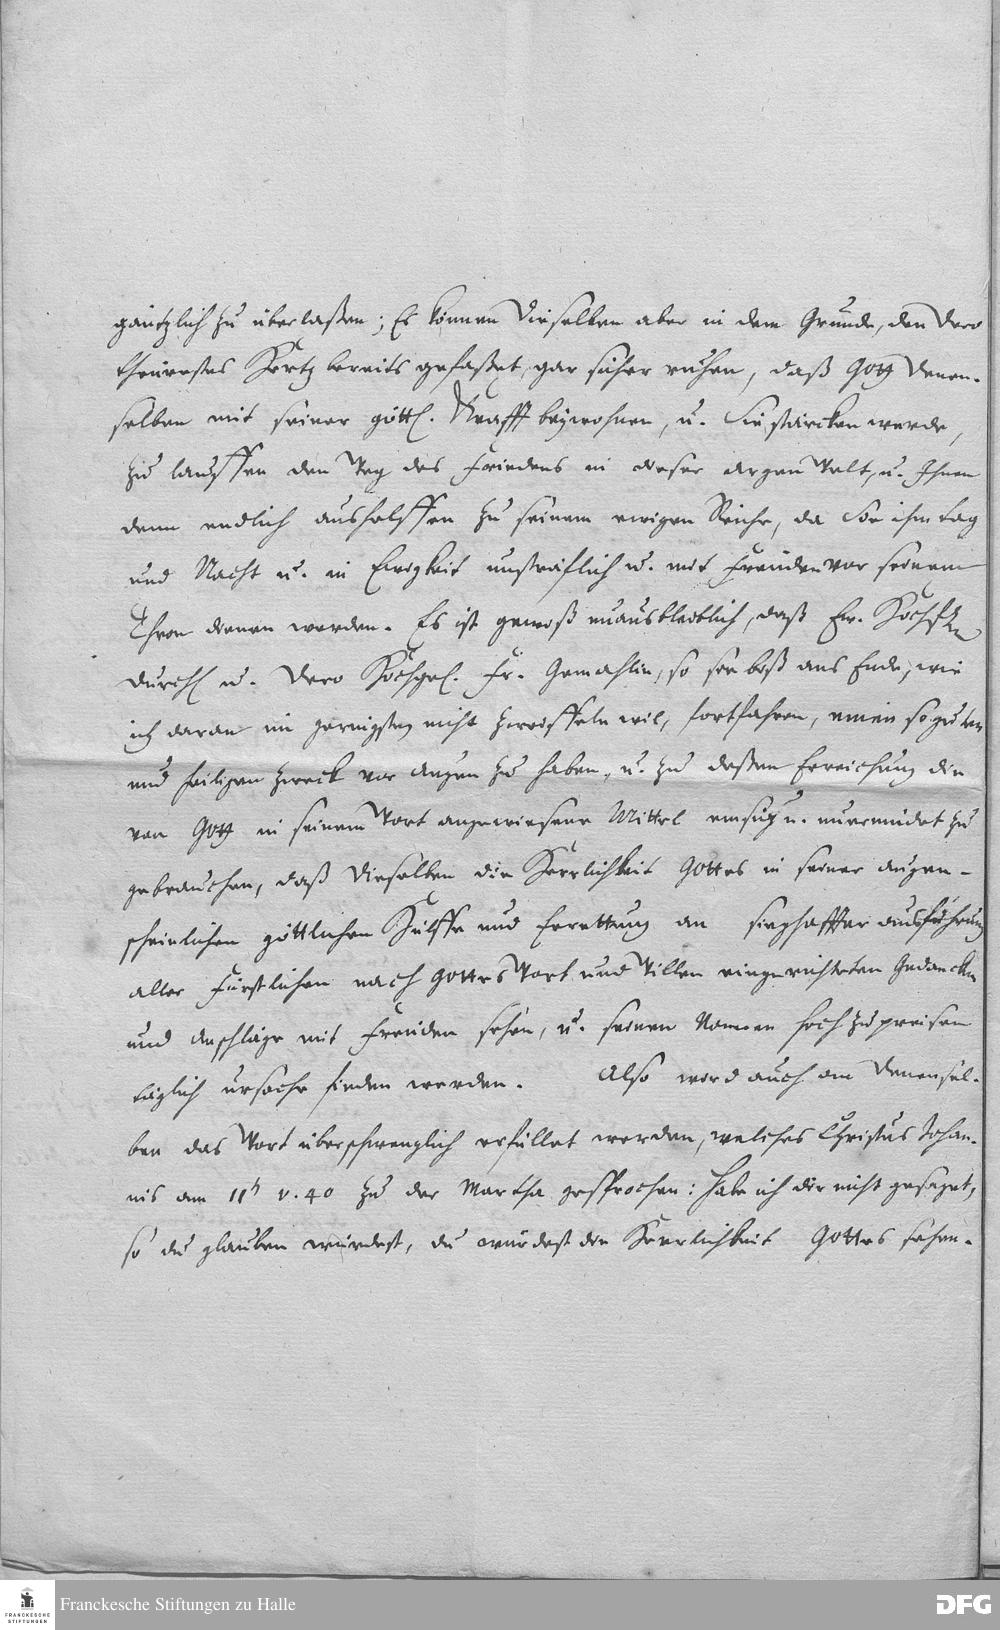 gäntzlich zu überlaßen; Es können dieselben aber in dem Grunde, den dero
theurestes Hertz bereits gefaßet, gar sicher ruhen, daß Gott denen-
selben mit seiner göttl. Krafft beywohnen, u. Sie stärcken werde,
zu lauffen den Weg des Friedens in dieser argen Welt, u. Ihnen
denn endlich aushelffen zu seinem ewigen Reiche, da Sie ihm tag
und Nacht u. in Ewigkeit unsträflich u. mit Freuden vor seinem
Thron dienen werden. Es ist gewiß unausbleiblich, daß Ew. Hochfürstl.
Durchl. u. Dero Hochgel. Fr. Gemahlin, so sie biß ans Ende, wie
ich daran im geringsten nicht zweiffeln wil, fortfahren, einen so guten
und heiligen Zweck vor Augen zu haben, u. zu deßen Erreichung die
von Gott in seinem Wort angewiesene Mittel emsig u. unermüdet zu
gebrauchen, daß dieselben die Herrlichkeit Gottes in seiner augen-
scheinlichen göttlichen Hülffe und Errettung an sieghaffter Ausführung
aller Fürstlichen nach Gottes Wort und Willen eingerichteten Gedancken
und Anschläge mit Freuden sehen, u. seinen Namen hoch zu preisen
täglich ursache finden werden. Also wird auch an denensel-
ben das Wort überschwenglich erfüllet werden, welches Christus Johan-
nis am 11ten v. 40 zu der Martha gesprochen: Habe ich dir nicht gesaget,
so du glauben würdest, du würdest die Herrlichkeit Gottes sehen.
Franckesche Stiftungen zu Halle
FRANCKESCHE
STIFTUNGEN
DFG